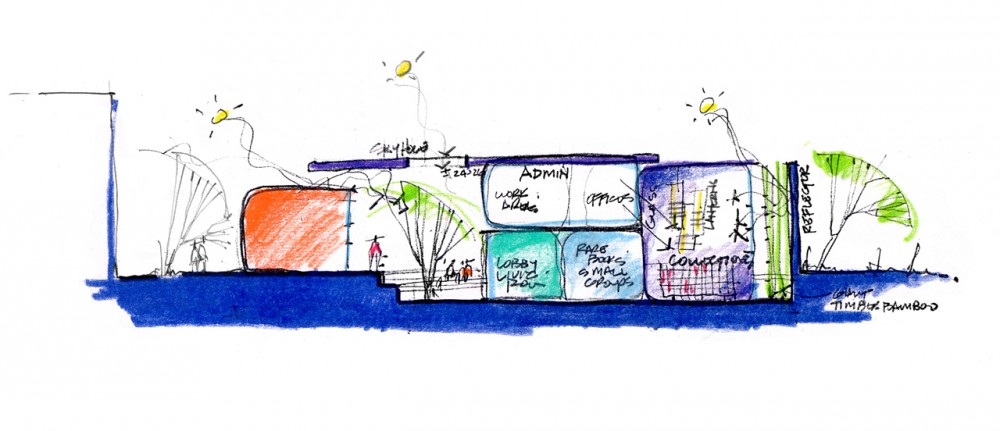 SKYHOLE
ADMIN
WORK
AREAS
OFFICES
GLASS
LANTERN
COLLECTIONS
REFLECTOR
LOBBY
LIVING
ROOM
RARE
BOOKS
SMALL
GROUPS
GIANT
TIMBER BAMBOO